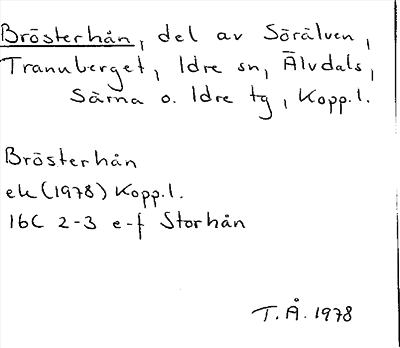 Brösterhån, del av Sörälven,
Tranuberget, Idre sn, Älvdals,
Särna o. Idre tg, Kopp.l.
Brösterhån
ek (1978) Kopp.l.
16C 2-3 e-f Storhån
T.Å. 1978